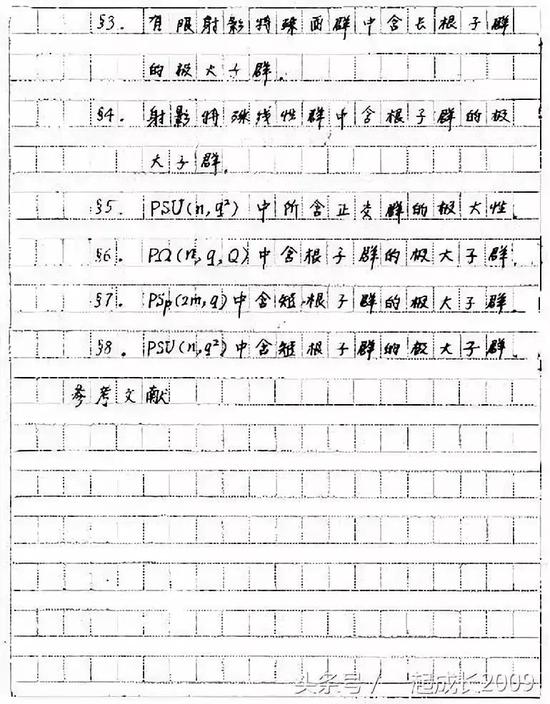 §3. 有限射影特殊酉群中含长根子群
的极大子群.
§4. 射影特殊线性群中含根子群的极
大子群.
§5. PSU(n,q²)中所含正交群的极大性.
§6. PΩ(n,q,Q)中含根子群的极大子群.
§7. PSp(2m,q)中含短根子群的极大子群.
§8. PSU(n,q²)中含短根子群的极大子群.
参考文献
头条号/一起成长2009